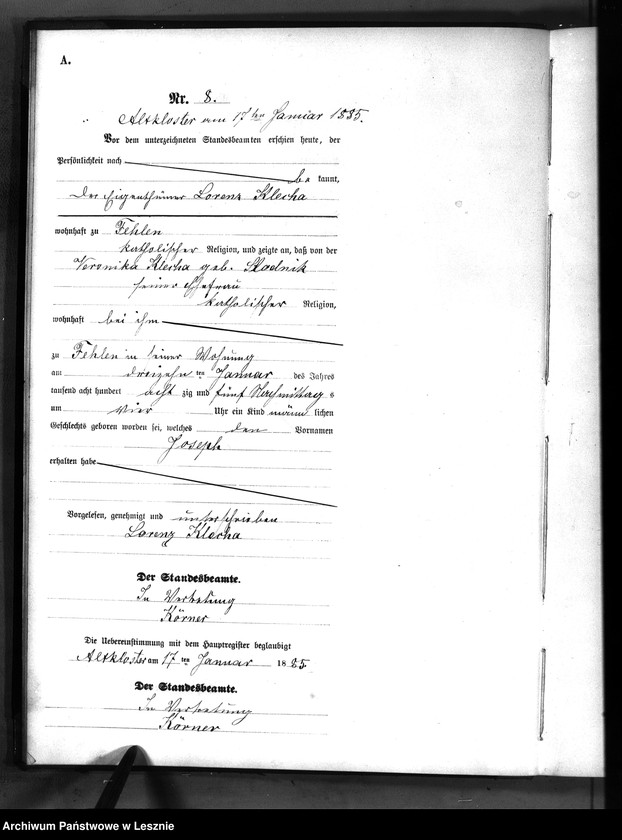 A.
Nr. 8.
Altkloster am 17ten Januar 1885.
Vor dem unterzeichneten Standesbeamten erschien heute, der
Persönlichkeit nach
be kannt,
der Eigenthümer Lorenz Klecha
wohnhaft zu Fehlen
katholischer Religion, und zeigte an, daß von der
Veronika Klecha geb. Skodnik
seiner Ehefrau
katholischer Religion,
wohnhaft bei ihm
zu Fehlen in seiner Wohnung
am dreizehn ten Januar des Jahres
tausend acht hundert acht zig und fünf Nachmittag s
um vier Uhr ein Kind männ lichen
Geschlechts geboren worden sei, welches den Vornamen
Joseph
erhalten habe
Vorgelesen, genehmigt und unterschrieben
Lorenz Klecha
Der Standesbeamte.
In Vertretung
Körner
Die Uebereinstimmung mit dem Hauptregister beglaubigt
Altkloster am 17 ten Januar 18 85.
Der Standesbeamte.
In Vertretung
Körner
Archiwum Państwowe w Lesznie